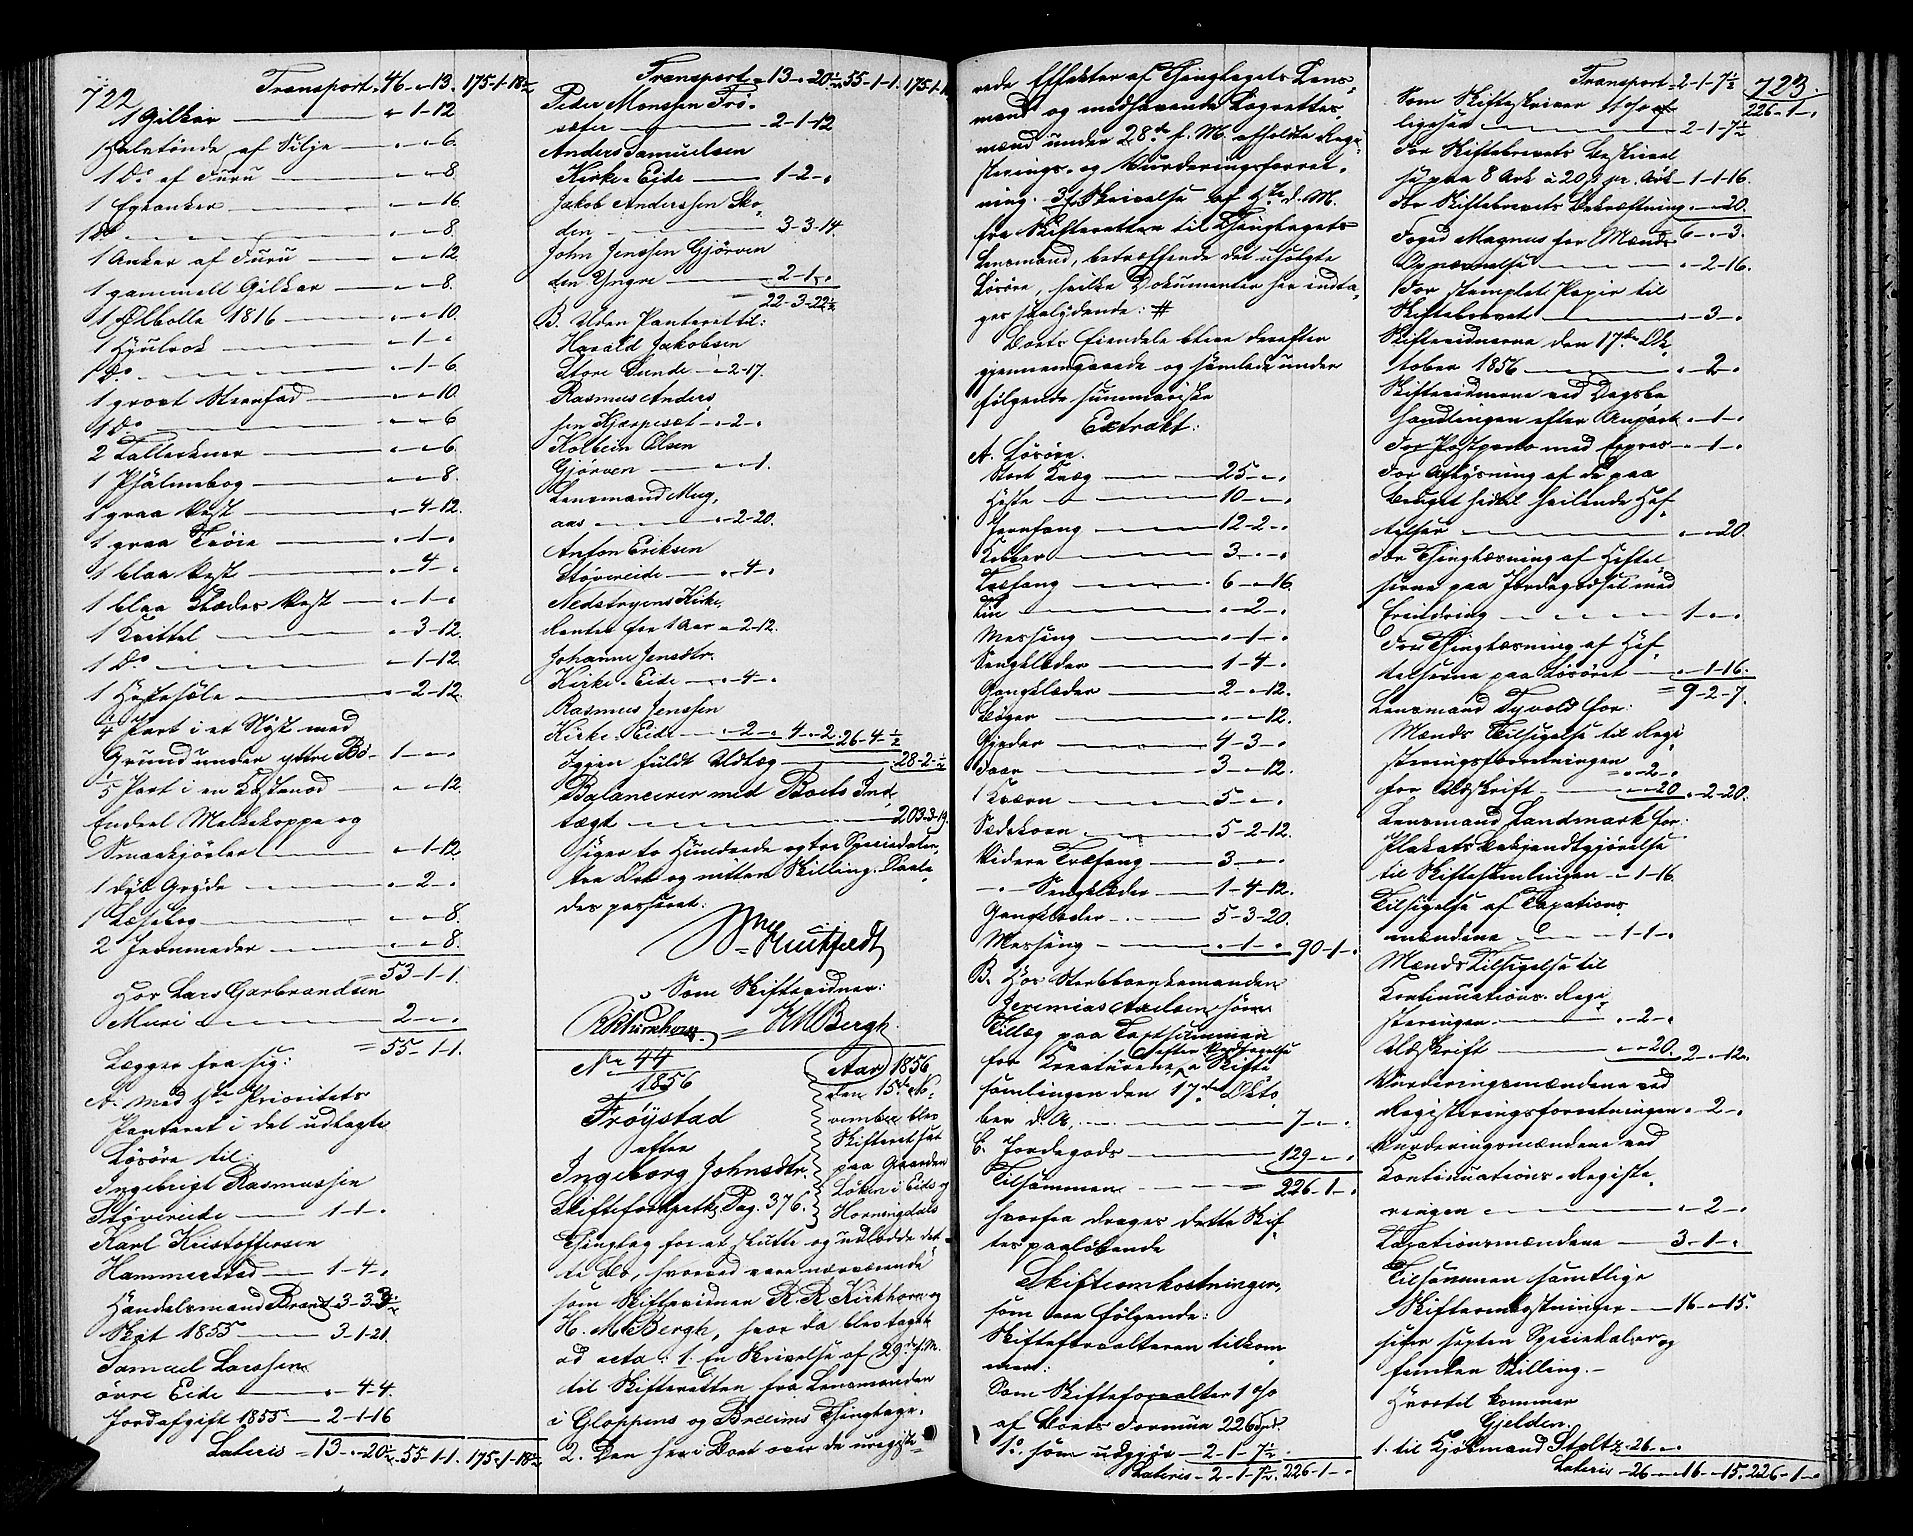 722
Transport 46 - " - 13. 175-1-18½
1 Gilkar — " - 1-12
1 Halvtønde af Silje — " - " - 6.
1 Do af Furu — " - " - 8.
1 Egeanker — " - " - 16.
1 Do — " - " - 8.
1 Anker af Furu — " - " - 12.
1 gammelt Gilkar — " - " - 8.
1 Ølbolle 1816 — " - " - 10.
1 Hjulrok — " - 1 - "
1 Do — " - 1 - 6
1 grovt Steenfad — " - " - 10.
1 Do — " - " - 6
2 Tallerkener — " - " - 6.
1 Psalmebog — " - " - 8.
1 graa Vest — " - 4-12.
1 graa Trøie — " - 1 - "
1 blaa Vest — " - 4 - "
1 blaa Klædes Vest — " - 1 - "
1 Kvittel — " - 3-12.
1 Do — " - 1-12.
1 Hestesæle — " - 2-12.
¼ Part i et Nøst med
Grund under yttre Bø — 1 - " - "
⅕ Part i en Kastenod — " - " - 12.
Endeel Melkekopper og
Smaakjøreler — " - 1-12.
1 dyb Gryde — " - 2 - "
1 Læsebog — " - " - 8.
2 Jernmeder — " - " - 8.
= 53-1-1.
Hos Lars Garbrandsen
Muri — 2 - " - "
= 55-1-1.
Lægger fra sig:
A. Med 1ste Prioritets
Panteret i det udlagte
Løsøre til:
Ingebrigt Rasmussen
Støvereide — 1-1-"
Karl Kristoffersen
Hammerstad — 1-4-"
Handelsmand Brandt 3-3-3½
Skat 1855 — 3-1-21.
Samuel Larssen
øvre Eide — " - 4-4.
Jordafgift 1855 — 2-1-16
Lateris = 13 - " - 20½. 55-1-1. 175-1-18½
Transport 13 - " - 20½ 55-1-1. 175-1-1
Peder Monsen Frø-
sæter — 2-1-12
Anders Samuelsen
Kirke-Eide — 1-2-"
Jakob Anderssen Sko-
den — 3-3-14
John Jenssen Gjørven
den Yngre — 2-1-"
= 22-3-22½
B. Uden Panteret til:
Harald Jakobsen
Store Sunde - " - 2-17.
Rasmus Anders
sen Kjærpeset - " - 2 - "
Kolbein Olsen
Gjørven — " - " - 1.
Lensmand Myg-
aas — " - 2-20.
Anton Eriksen
Støvereide — " - 4 - "
Nedstryens Kirke,
Renter for 1 Aar " - 2-12.
Johanne Jensdtr.
Kirke-Eide — " - 4 - "
Rasmus Jenssen
Kirke-Eide — " - 2 - " 4 - " - 2. 26-4-½
Igjen fuldt Udlæg — 28-2-½
Balancerer med Boets Ind-
tægt — 203-3-19.
siger to Hundrede og tre Speciedaler,
tre Ort og nitten Skilling. Saale-
des passeret:
Huitfeldt
Som Skiftevidner:
R R Kirkhorn. = H M Bergh.
No 44
1856
Frøystad
efter
Ingeborg Johnsdtr.
Skifteforhpotk. Pag. 376.
Aar 1856
den 15de No-
vember blev
Skifteret sat
paa Gaarden
Løken i Eids og
Hornindals
Thinglag for at slutte og udlodde det-
te Bo, hvorved vare nærværende
som Skiftevidner R. R. Kirkhorn og
H. M. Bergh, hvor da blev taget
ad acta: 1. En Skrivelse af 29de f. M.
til Skifteretten fra Lensmanden
i Gloppens og Breims Thinglage.
2. Den her i Boet over de uregist-
rede Effekter af Thinglagets Lens-
mand og medhavende Lagrettes-
mænd under 28de f. M. afholdte Regi-
strerings- og Vurderingsforret-
ning. 3. Skrivelse af 4de d. M.
fra Skifteretten til Thinglagets
Lensmand, betræffende det usolgte
Løsøre, hvilke Dokumenter her indta-
ges saalydende: #
Boets Eiendele bleve derefter
gjennemgaaede og samlede under
følgende summariske
Extrakt:
A. Løsøre.
Stort Kvæg — 25 - " - "
Heste — 10 - " - "
Jernfang — 12-2-"
Kobber — 3 - " - "
Træfang — 6 - " - 16.
Tin — " - 2 - "
Messing — " - 1 - "
Sengklæder — 1-4-"
Gangklæder — 2 - " - 12.
Bøger — " - " - 12.
Gjeder — 4-3-"
Faar — 3 - " - 12.
1 Kværn — 5 - " - "
Sædekorn — 5-2-12.
Videre Træfang — 3 - " - "
- " - Sengklæder — 1-4-12.
Gangklæder - " - — 5-3-20.
Messing - " - — " - 1 - " 90-1-"
B. Hos Stervboenkemanden
Jeremias Axelsens søn
Tillæg paa Taxtsummen
for Kreaturene efter Vedtagelse i Skifte
samlingen den 17de Okto-
ber d. A. — 7 - " - "
C. Jordegods — 129 - " - "
Tilsammen — = 226-1-"
hvorfra drages dette Skif-
tes paaløbende
Skifteomkostninger,
som ere følgende:
Skifteforvalteren tilkom
mer:
Som Skifteforvalter 1 %
af Boets Formue 226 Spd.
1 o. som udgjør — 2-1-7½.
Lateris - 2-1-7½. 226-1-"
723.
Transport 2-1-7½ 226-1-"
Som Skifteskriver
ligesaa — 2-1-7½
For Skiftebrevets Beskrivel
se paa 8 Ark à 20 s pr. Ark — 1-1-16.
For Skiftebrevets Bekræftning " - " - 20.
= 6 - " - 3.
Foged Magnus for Mænds
Opnævnelse — " - 2-16.
For stemplet Papir til
Skiftebrevet — " - 3 - "
Skiftevidnerne den 17de Ok-
tober 1856 — " - 2 - "
Skiftevidnerne ved Dagsbe
handlingen efter Anpart " - 1 - "
For Postporto med Expres " - 1 - "
For Aflysning af de paa
Bruget hidtil heilende Hef-
telser — " - " - 20.
For Thinglæsning af Heftel
serne paa Jordegodset med
Erindring — 1 - " - "
For Thinglæsning af Hef-
telserne paa Løsøret — " - 1-16.
= 9-2-7.
Lensmand Tyvold for:
Mænds Tilsigelse til Regi
streringsforretningen
" - 2 - "
for Udskrift — " - " - 20. " - 2-20.
Lensmand Landmark for:
Plakats Bekjendtgjørelse
til Skiftesamlingen - " 1-16.
Tilsigelse af Taxations-
mændene — 1-1-"
Mænds Tilsigelse til
Kontinuations-Regi
streringen — " - 2 - "
Udskrift — " - " - 20. 2 - " - 12.
Vurderingsmændene ved
Registreringsforretningen " - 2 - "
Vurderingsmændene ved
Kontinuations-Registe-
ringen — " - 2 - "
Taxationsmændene — 3-1-"
Tilsammen samtlige
Skifteomkostninger — 16 - " - 15.
siger sexten Speciedaler og
femten Skilling.-
Hertil kommer
Gjelden.
1. til Kjøbmand Stoltz - 26 - "
Lateris - 26 - " - 16 - " - 15. 226-1-"